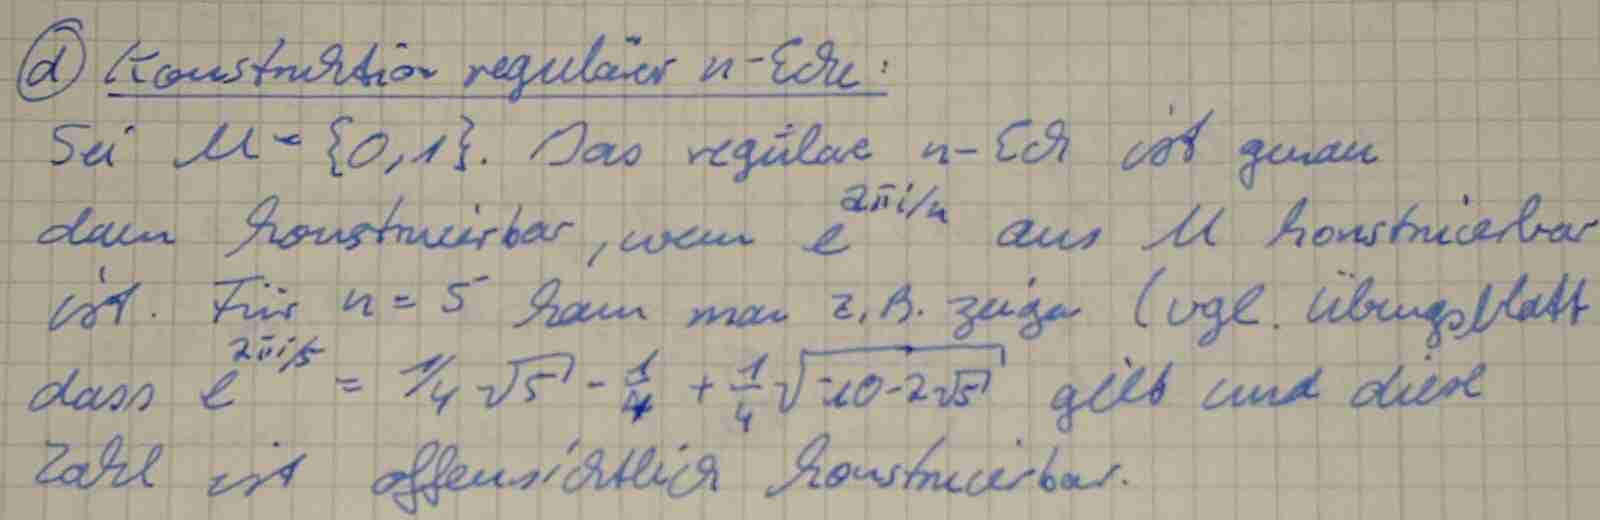 (d) Konstruktion regulärer n-Ecke:
Sei M = {0,1}. Das reguläre n-Eck ist genau
dann konstruierbar, wenn e^{2πi/n} aus M konstruierbar
ist. Für n = 5 kann man z.B. zeigen (vgl. Übungsblatt
dass e^{2πi/5} = 1/4 √5 - 1/4 + 1/4 √(-10-2√5) gilt und diese
Zahl ist offensichtlich konstruierbar.